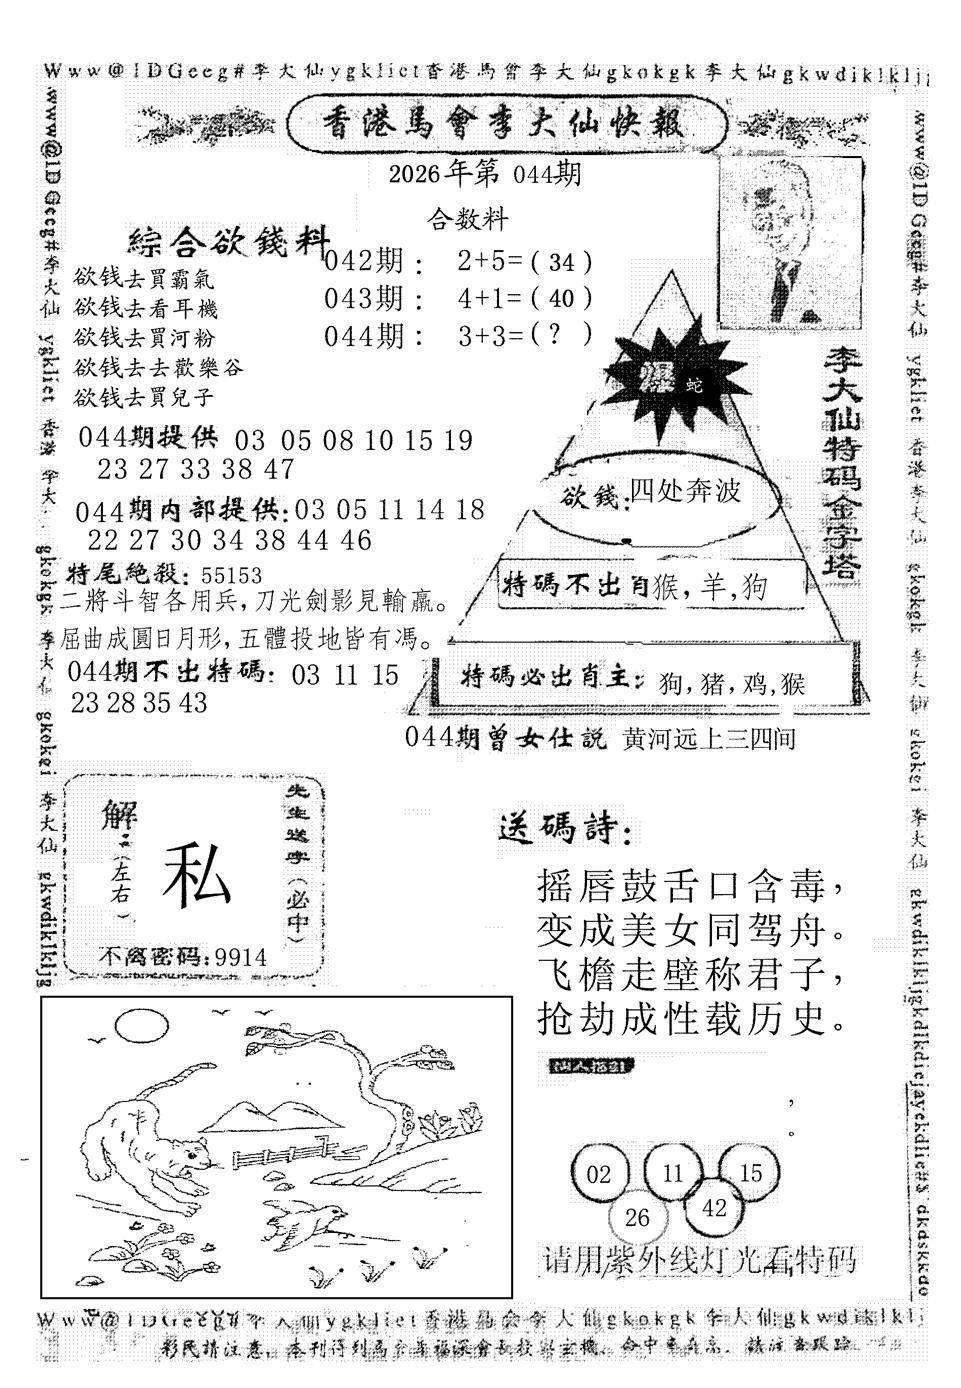 Www@1DGeeg#李大仙ygkliet香港馬會李大仙gkokgk李大仙gkwdiklkljg
香港馬會李大仙快報
2026年第 044期
合数料
綜合欲錢料
042期： 2+5=（34）
043期： 4+1=（40）
044期： 3+3=（？）
欲钱去買霸氣
欲钱去看耳機
欲钱去買河粉
欲钱去去歡樂谷
欲钱去買兒子
爆 蛇
李大仙特码金字塔
044期提供 03 05 08 10 15 19
23 27 33 38 47
欲錢:四处奔波
044期内部提供:03 05 11 14 18
22 27 30 34 38 44 46
特尾絶殺: 55153
特碼不出肖猴,羊,狗
二將斗智各用兵,刀光劍影見輸贏。
屈曲成圓日月形,五體投地皆有馮。
044期不出特碼: 03 11 15
23 28 35 43
特碼必出肖主: 狗,猪,鸡,猴
044期曾女仕説 黄河远上三四间
先生送字（必中）
解:
（左右）
私
不离密码:9914
送碼詩:
摇唇鼓舌口含毒，
变成美女同驾舟。
飞檐走壁称君子，
抢劫成性载历史。
，
。
02 11 15
26 42
请用紫外线灯光看特码
www@1DGeeg#李大仙 ygkliet 香港 李大 gkokgk 李大仙 gkokei 李大仙 gkwdiklkljg
www@1DGeeg#李大仙 ygkliet 香港李大仙 gkokgk 李大仙 gkokei 李大仙 gkwdiklkljgkdlkdiejayekdlie#$ dkdskkdo
Www@1DGeeg#李大仙ygkliet香港馬会李大仙gkokgk李大仙gkwdiklklj
彩民請注意,本刊得到馬会